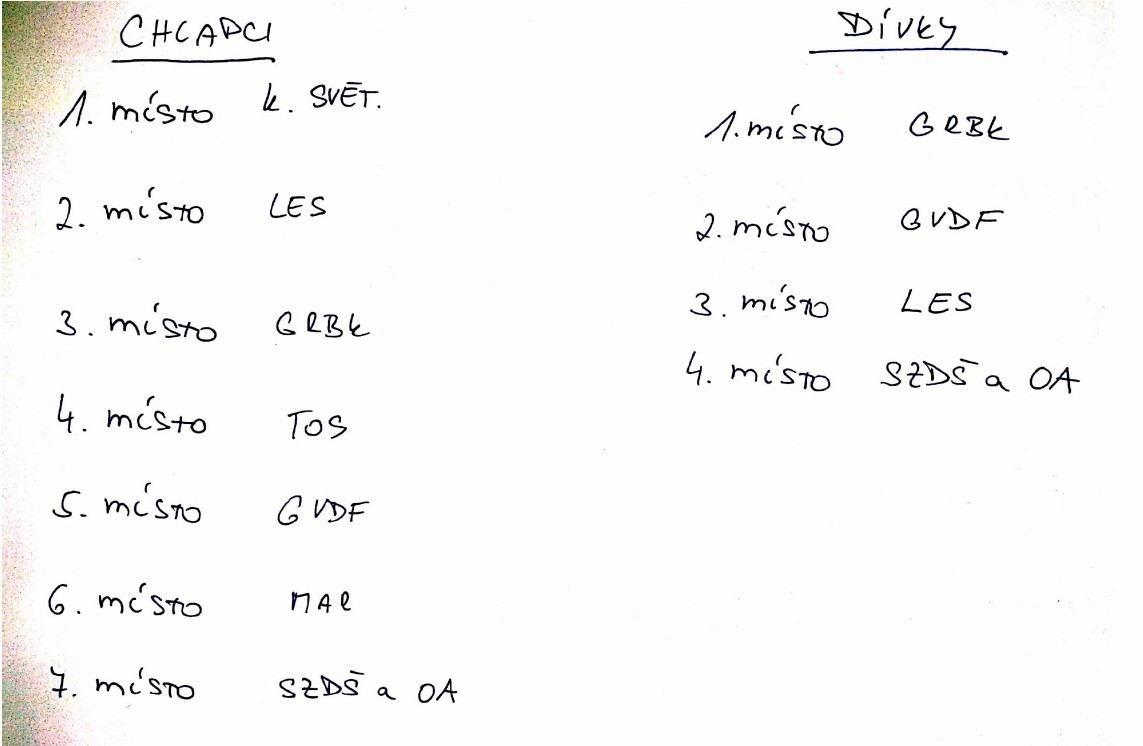 CHLAPCI
1. místo K. SVĚT.
2. místo LES
3. místo GRBK
4. místo TOS
5. místo GVDF
6. místo MAR
7. místo SZDŠ a OA
DÍVKY
1. místo GRBK
2. místo GVDF
3. místo LES
4. místo SZDŠ a OA